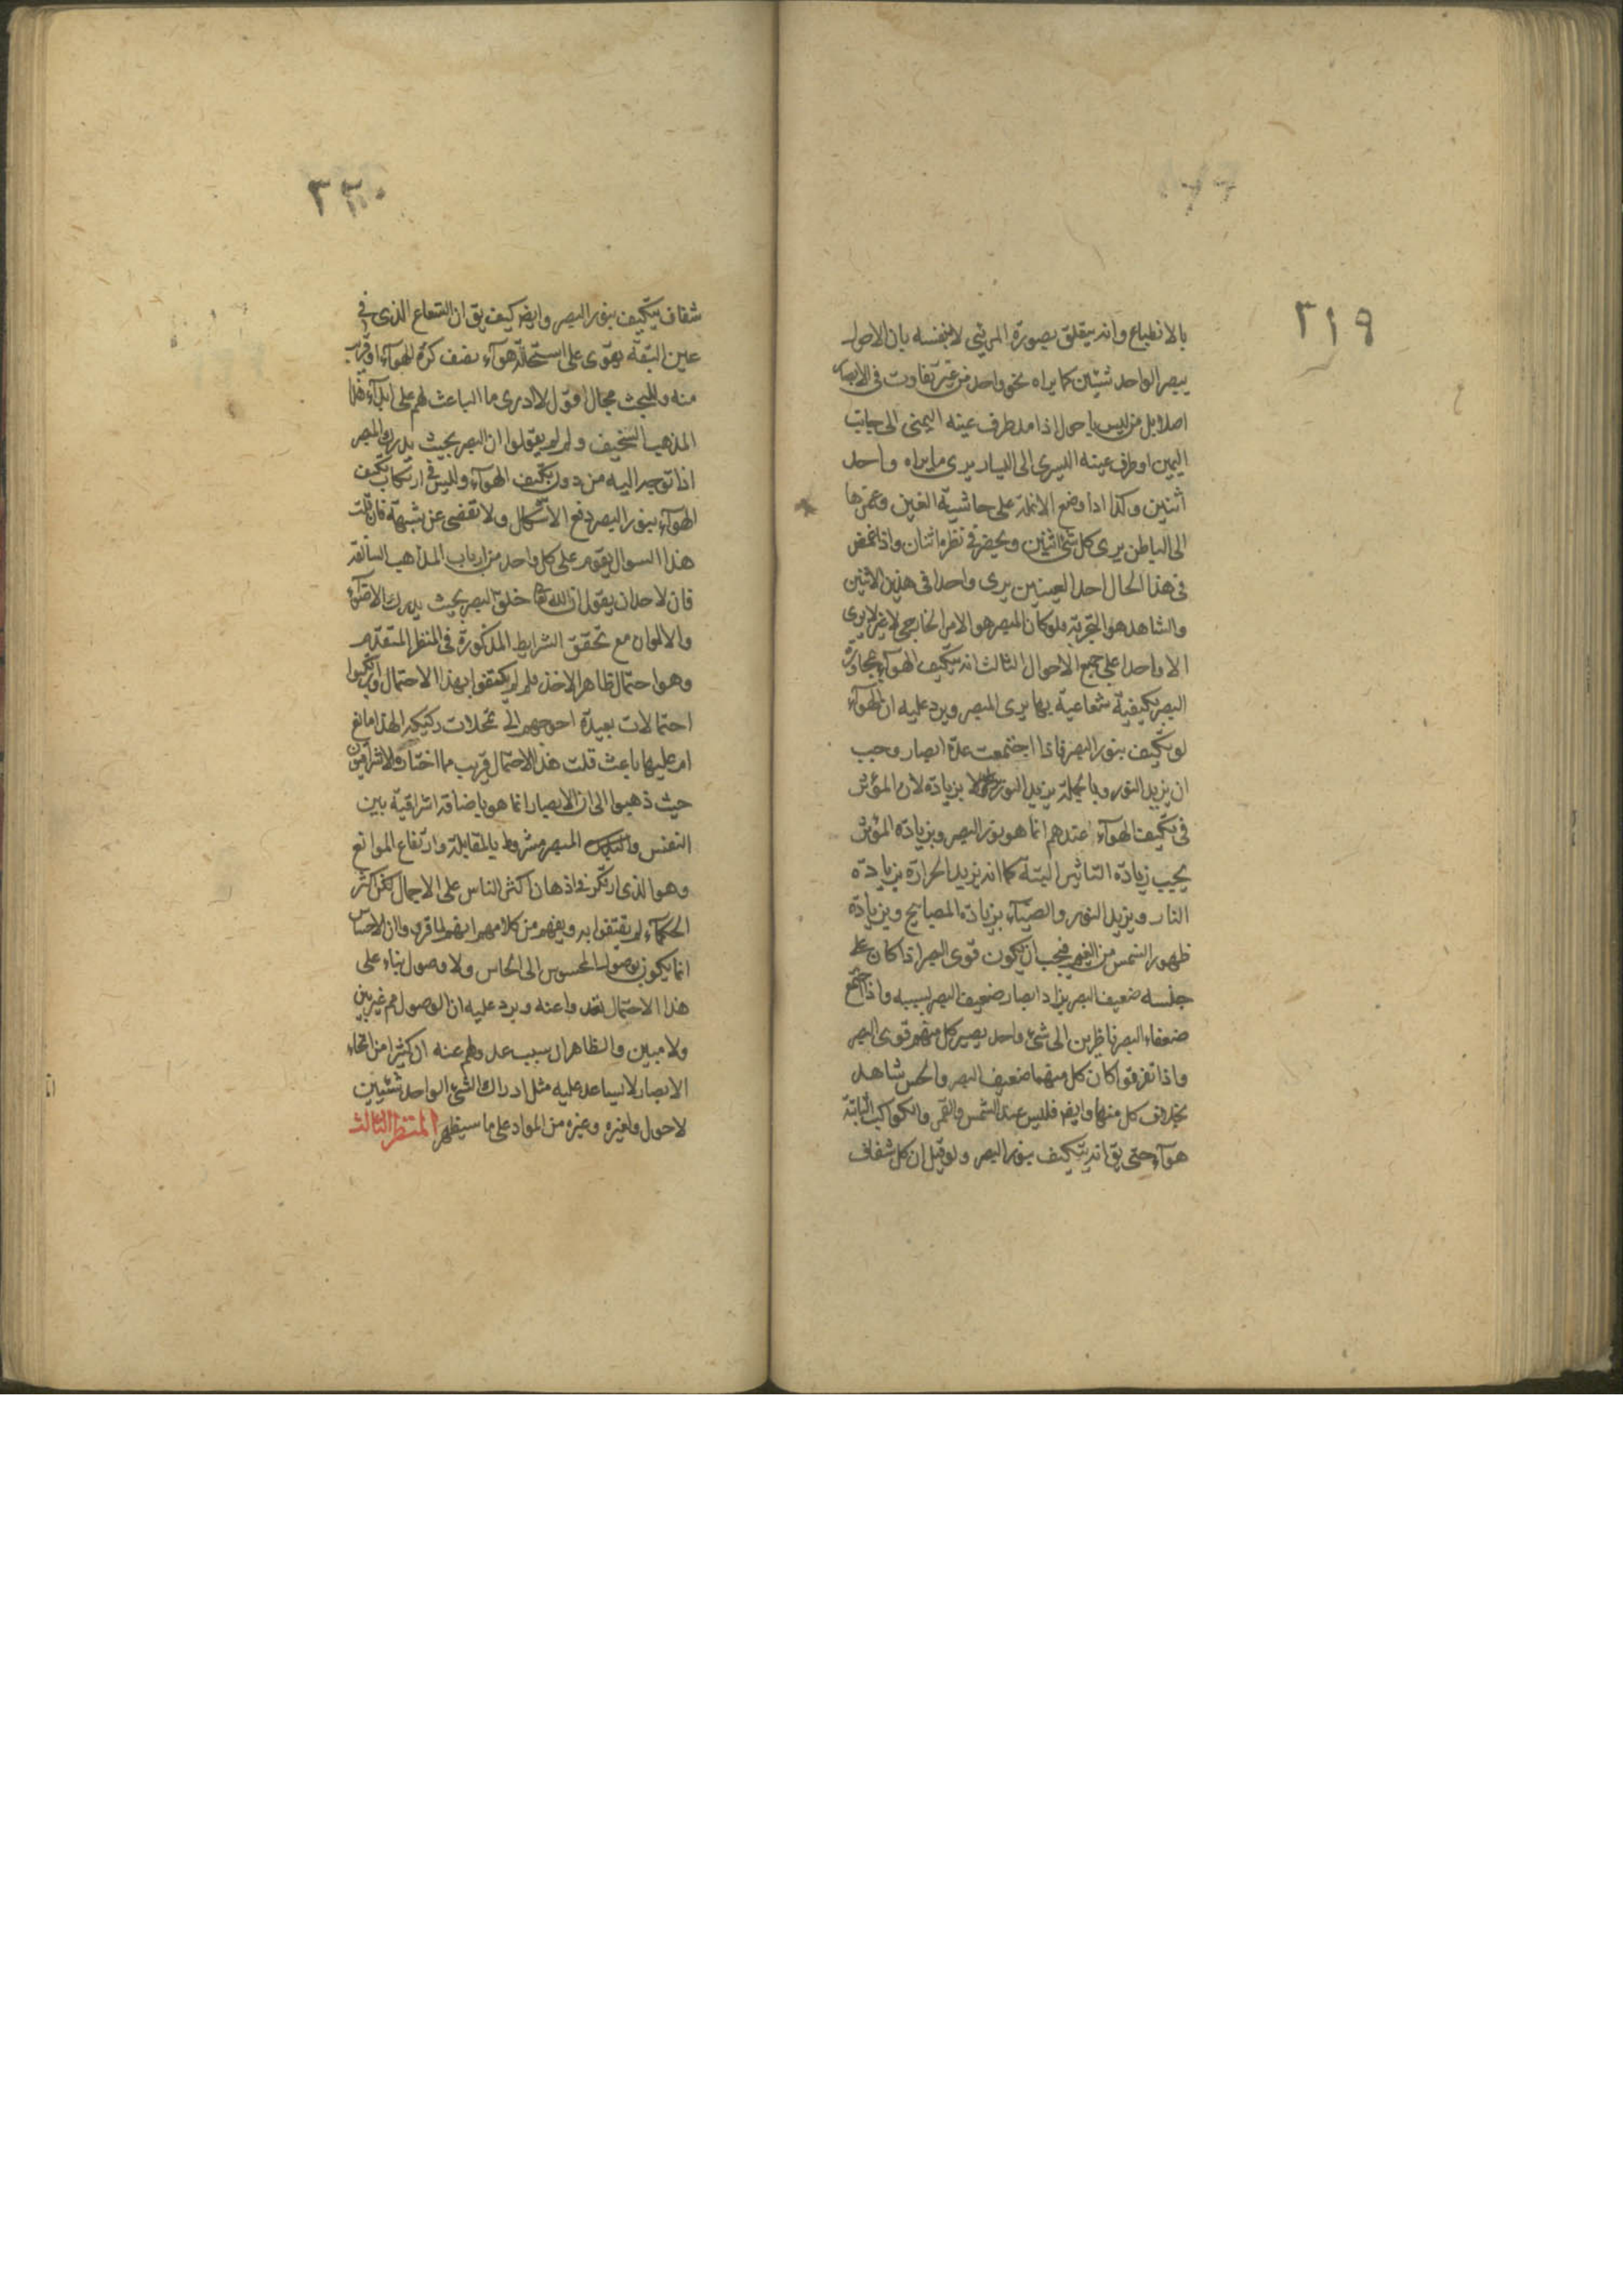 ٣١٩
بالانطباع وانه يتعلق بصورة المرئي لا بنفسه بان الاحول
يبصر الواحد شيئين كما يراه نحو واحد من غير تفاوت في الابصار
اصلا بل من ليس باحول اذا مد طرف عينه اليمنى الى جانب
اليمين او طرف عينه اليسرى الى اليسار يرى ما يراه واحد
اثنين وكذا اذا وضع الانملة على حاشية العين وغمزها
الى الباطن يرى كل شئ اثنين ويحضر في نظره اثنان واذا غمض
في هذا الحال احد العينين يرى واحدا في هذين الاثنين
والشاهد هو التجربة فلو كان المبصر هو الامر الخارجي لا غير لا يرى
الا واحدا على جميع الاحوال الثالث انه يتكيف الهوآء بمجاورة
البصر بكيفية شعاعية بها يرى المبصر ويرد عليه ان الهوآء
لو تكيف بنور البصر فاذا اجتمعت عدة ابصار وجب
ان يزيد النور وبالجملة يزيد النور بزيادة لان المؤثر
في تكيف الهوآء عندهم انما هو نور البصر وبزيادة المؤثر
يجب زيادة التاثير البتة كما انه تزيد الحرارة بزيادة
النار ويزيد النور والضيآء بزيادة المصابيح وبزيادة
ظهور الشمس من الغيم فيجب ان يكون قوى البصر اذا كان على
جلسه ضعيف البصر يزاد ابصار ضعيف البصر لسببه واذا اجتمع
ضعفاء البصر ناظرين الى شئ واحد يصير كل منهم قوى البصر
واذا تفرقوا كان كل منهما ضعيف البصر والحس شاهد
بخلاف كل منهما وايضر فليس عند الشمس والقمر والكواكب الثابتة
هوآء حتى يق انه يتكيف بنور البصر ولو قيل ان كل شفاف
٣٢٠
شفاف يتكيف بنور البصر وايضر كيف يق ان الشعاع الذي في
عين البقة يقوى على استحالة هوآء نصف كرة الهوآء او قريب
منه وللبحث مجال اقول لا ادرى ما الباعث لهم على ابدآء هذا
المذهب السخيف ولم لم يقولوا ان البصر بحيث يدرك المبصر
اذا توجه اليه من دون تكيف الهوآء وليس في ارتكاب تكيف
الهوآء بنور البصر دفع الاشكال ولا تفصى عن شبهة فان قلت
هذا السوال يقوم على كل واحد من ارباب المذاهب السالفة
فان لاحد ان يقول ان الله تعا خلق البصر بحيث يدرك الاضوآء
والالوان مع تحقق الشرايط المذكورة في المنظر المتقدم
وهو احتمال ظاهر الاخذ فلم لم يكتفوا بهذا الاحتمال وارتكبوا
احتمالات بعيدة احوجهم الى تمحلات ركيكة الهذا مانع
ام عليها باعث قلت هذا الاحتمال قريب مما اختاره الاشراقيون
حيث ذهبوا الى ان الابصار انما هو باضافة اشراقية بين
النفس و المبصر مشروط بالمقابلة وارتفاع الموانع
وهو الذي ارتكز في اذهان اكثر الناس على الاجمال لكن اكثر
الحكمآء لم يقتنعوا به ويفهم من كلامهم انهم لما قرروا ان الاحساس
انما يكون بوصول المحسوس الى الحاس ولا وصول بناء على
هذا الاحتمال بعدوا عنه ويرد عليه ان الوصول مم غير بين
ولا مبين والظاهر ان سبب عدولهم عنه ان كثيرا من انحاء
الابصار لا يساعد عليه مثل ادراك الشئ الواحد شيئين
لاحول ولغيره وغيره من المواد على ما سيظهر المنظر الثالث